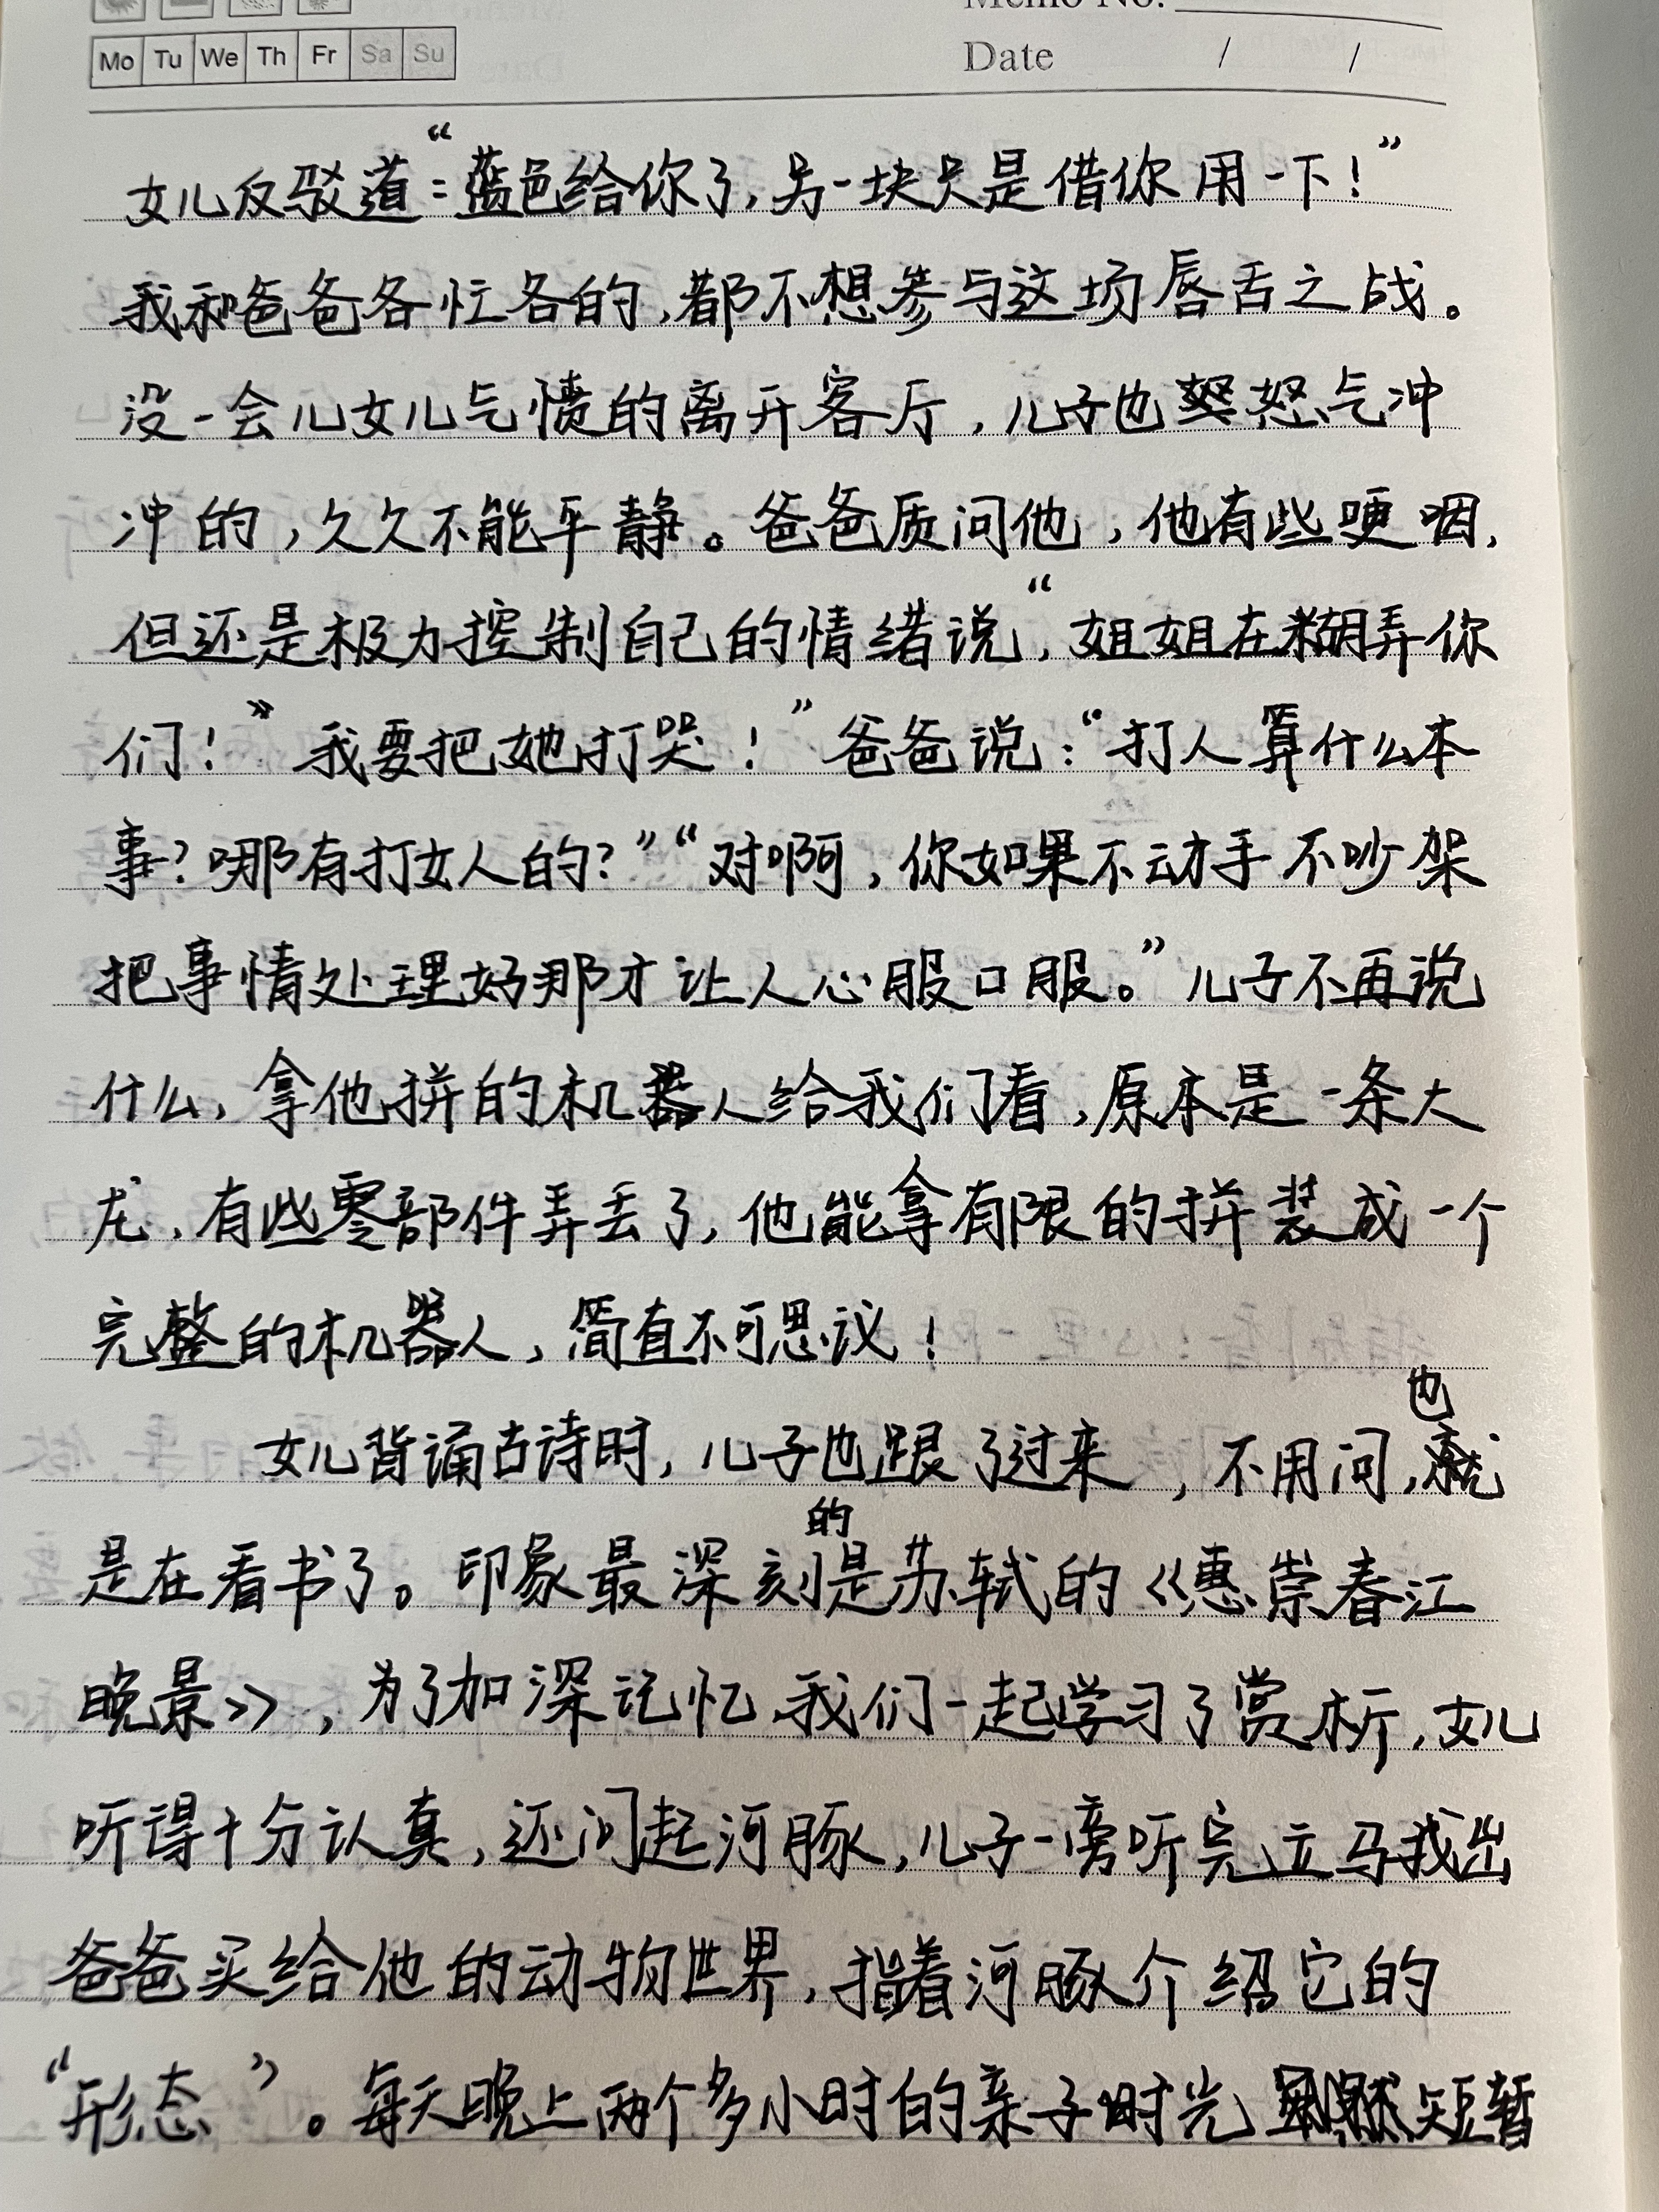 Memo No.
Mo Tu We Th Fr Sa Su
Date / /
女儿反驳道:“蓝色给你了,另一块只是借你用一下!”
我和爸爸各忙各的,都不想参与这场唇舌之战。
没一会儿女儿气愤的离开客厅,儿子也怒气冲
冲的,久久不能平静。爸爸质问他,他有些哽咽,
但还是极力控制自己的情绪说“,姐姐在糊弄你
们!”我要把她打哭!”爸爸说:“打人算什么本
事?哪有打女人的?”“对啊,你如果不动手不吵架
把事情处理好那才让人心服口服。”儿子不再说
什么,拿他拼的机器人给我们看,原本是一条大
龙,有些零部件弄丢了,他能拿有限的拼装成一个
完整的机器人,简直不可思议!
女儿背诵古诗时,儿子也跟了过来,不用问,也
是在看书了。印象最深刻的是苏轼的《惠崇春江
晚景》,为了加深记忆,我们一起学习了赏析,女儿
听得十分认真,还问起河豚,儿子一旁听完立马找出
爸爸买给他的动物世界,指着河豚介绍它的
“形态”。每天晚上两个多小时的亲子时光短暂